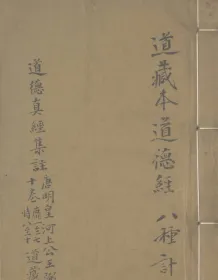 道藏本道德經八種計
道德真經集註唐明皇河上公王弼
十卷
道藏